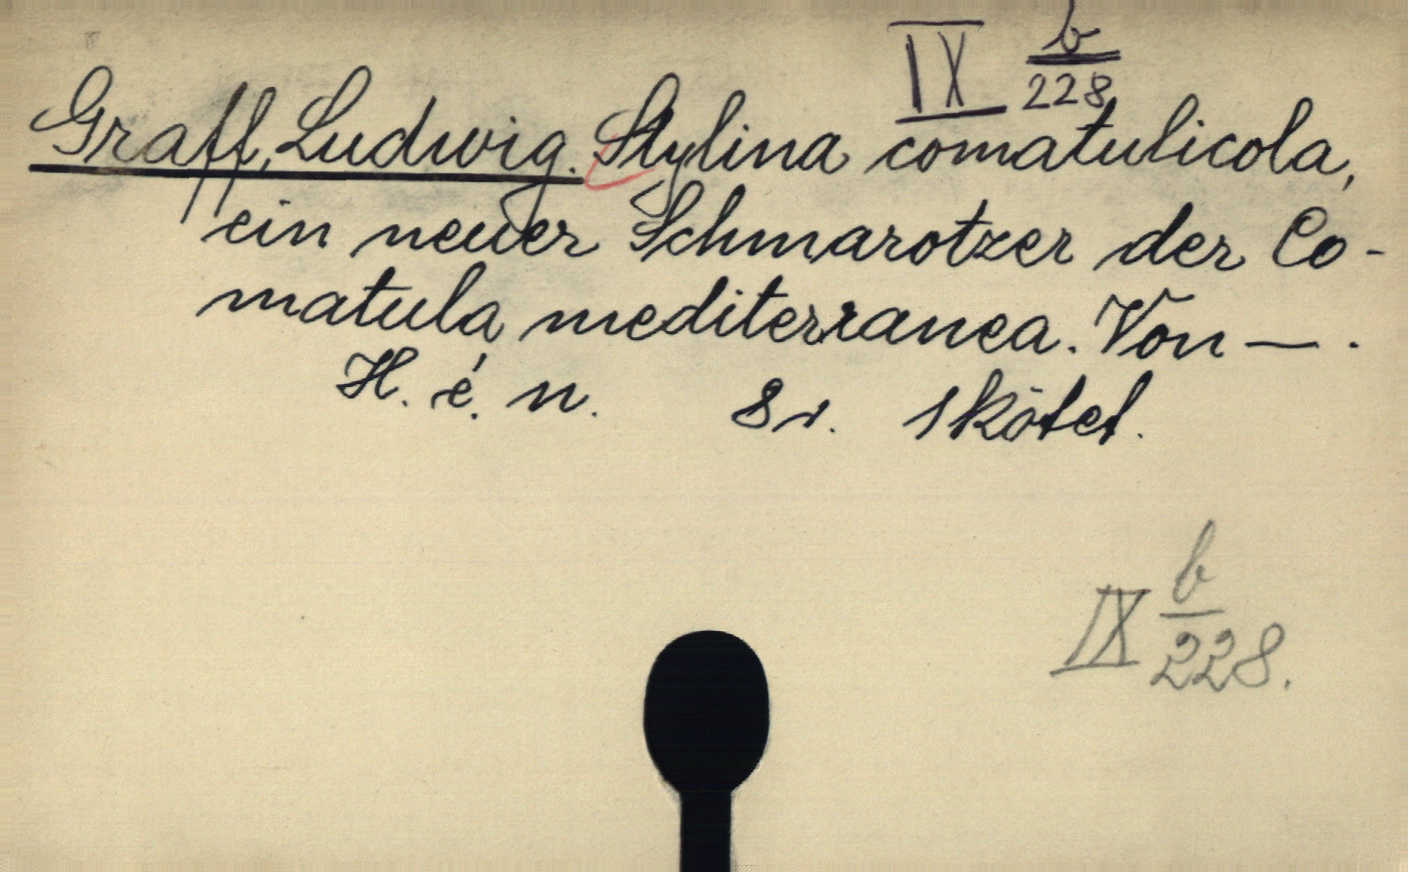 IX b/228
Graff, Ludwig. Stylina comatulicola,
ein neuer Schmarotzer der Co-
matula mediterranea. Von — .
H. é. n. 8r. 1 kötet.
IX b/228.